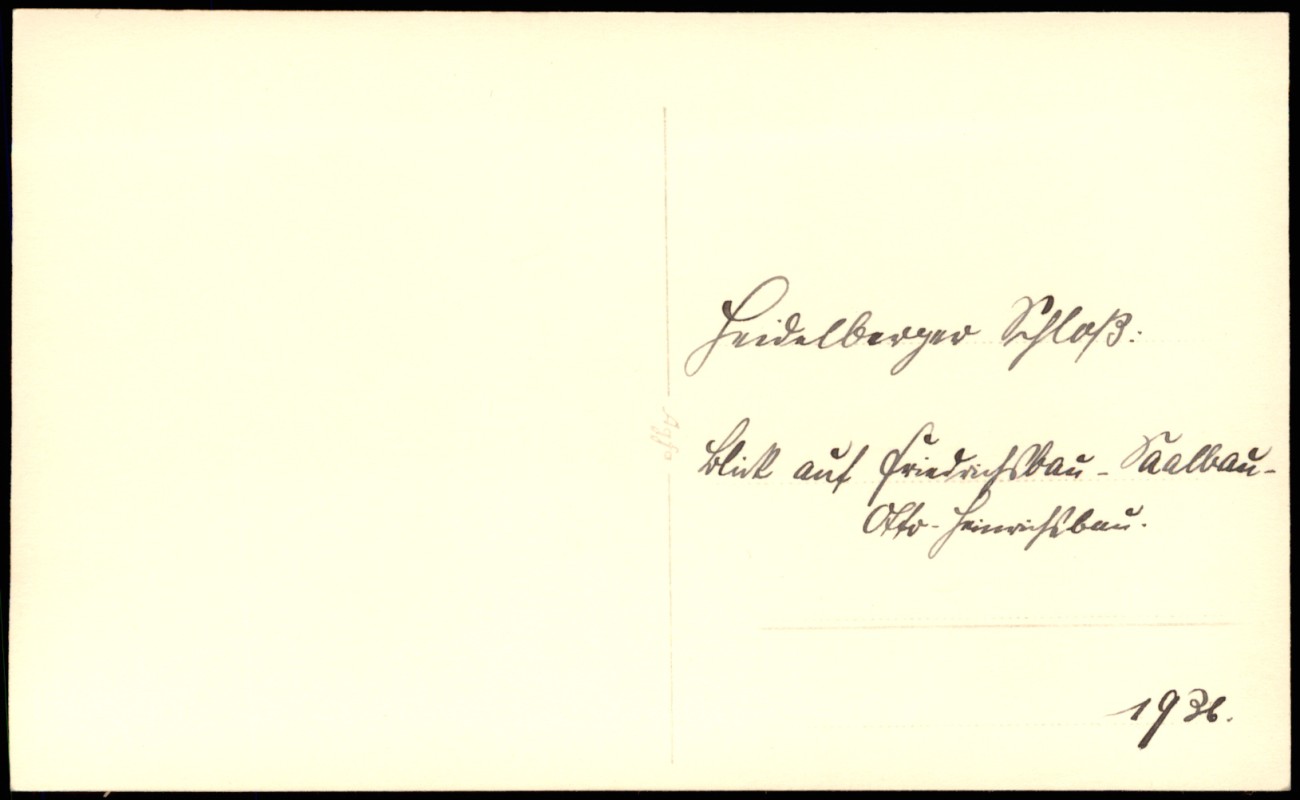 Heidelberger Schloß:
Blick auf Friedrichsbau - Saalbau -
Otto-Heinrichsbau.
1936.
Agfa